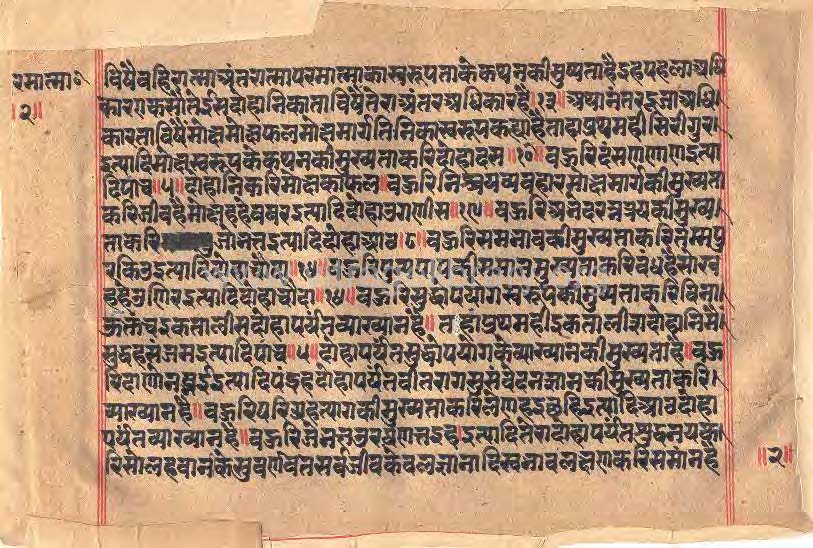 रमात्मा॰
॥२॥
विषैवहिरात्माअंतरात्मापरमात्माकास्वरूपताकेकथनकीमुख्यताहैइहपहलाअधि
कारएकसौतेईसदोहानिकाताविषैतेराअंतरअधिकारहै॥१३॥अथानंतरदूजाअधि
कारताविषैमोक्षमोक्षफलमोक्षमार्गतिनिकास्वरूपकह्याहैताहांप्रथमहीसिरीगुरु
इत्यादिमोक्षस्वरूपकेकथनकीमुख्यताकरिदोहादस॥१०॥वहुरिदंसणणाणइत्या
दिपाव॥५॥दोहानिकरिमोक्षकाफल॥वहुरिनिश्चयव्यवहारमोक्षमार्गकीमुख्यता
करिजीवहंमोक्खहंहेउवरइत्यादिदोहाउगणीस॥१९॥वहुरिअभेदरत्नत्रयकीमुख्य
ताकरिजोभत्तउइत्यादिदोहाआठ॥८॥वहुरिसमभावकीमुख्यताकरि
इत्यादिदोहाचौदा॥१४॥वहुरिपुण्यपापकीसमानमुख्यताकरिवंधहंमोक्ख
हंहेउणिउइत्यादिदोहाचौदा॥१४॥वहुरिशुद्धोपयोगस्वरूपकीमुख्यताकरि
इकतालीसदोहापर्यंतव्याख्यानहै॥ताहांप्रथमहीइकतालीसदोहानिमै
सुद्धहंसंजमइत्यादिपाच॥५॥दोहापर्यंतसुद्धोपयोगकेव्याख्यानकीमुख्यताहै॥वहु
रिदाणेलब्भइइत्यादिपंद्रहदोहापर्यंतवीतरागसुसंवेदनज्ञानकीमुख्यताकरि
व्याख्यानहै॥वहुरिपरिग्रहत्यागकीमुख्यताकरिलेणहंइच्छहिइत्यादिआठदोहा
पर्यंतव्याख्यानहै॥वहुरिजोभत्तउरयणत्तइहंइत्यादितेरादोहापर्यंतशुद्धनयक
रिसोलहवानकेसुवर्णवतसर्वजीवकेवलज्ञानादिस्वभावलक्षणकरिसमानहै
॥२॥